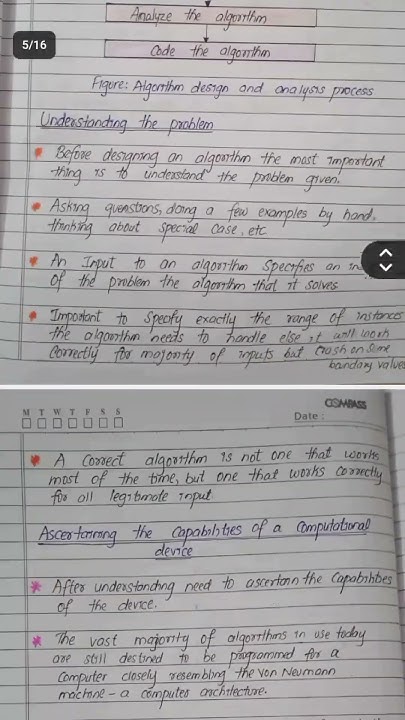 Analyze the algorithm
5/16
Code the algorithm
Figure: Algorithm design and analysis process
Understanding the problem
Before designing an algorithm the most important
thing is to understand the problem given.
Asking quenstions, doing a few examples by hand,
thinking about special case, etc
An Input to an algorithm specifies an
of the problem the algorithm that it solves
Important to specify exactly the range of instances
the algorithm needs to handle else it will work
correctly for majority of inputs but crash on some
boundary values
COMPASS
M T W T F S S
Date :
A Correct algorithm is not one that works
most of the time, but one that works correctly
for all legitimate input
Ascertaining the Capabilities of a Computational
device
After understanding need to ascertain the Capabilities
of the device.
The vast majority of algorithms in use today
are still destined to be programmed for a
Computer closely resembling the Von Neumann
machine - a computer architecture.